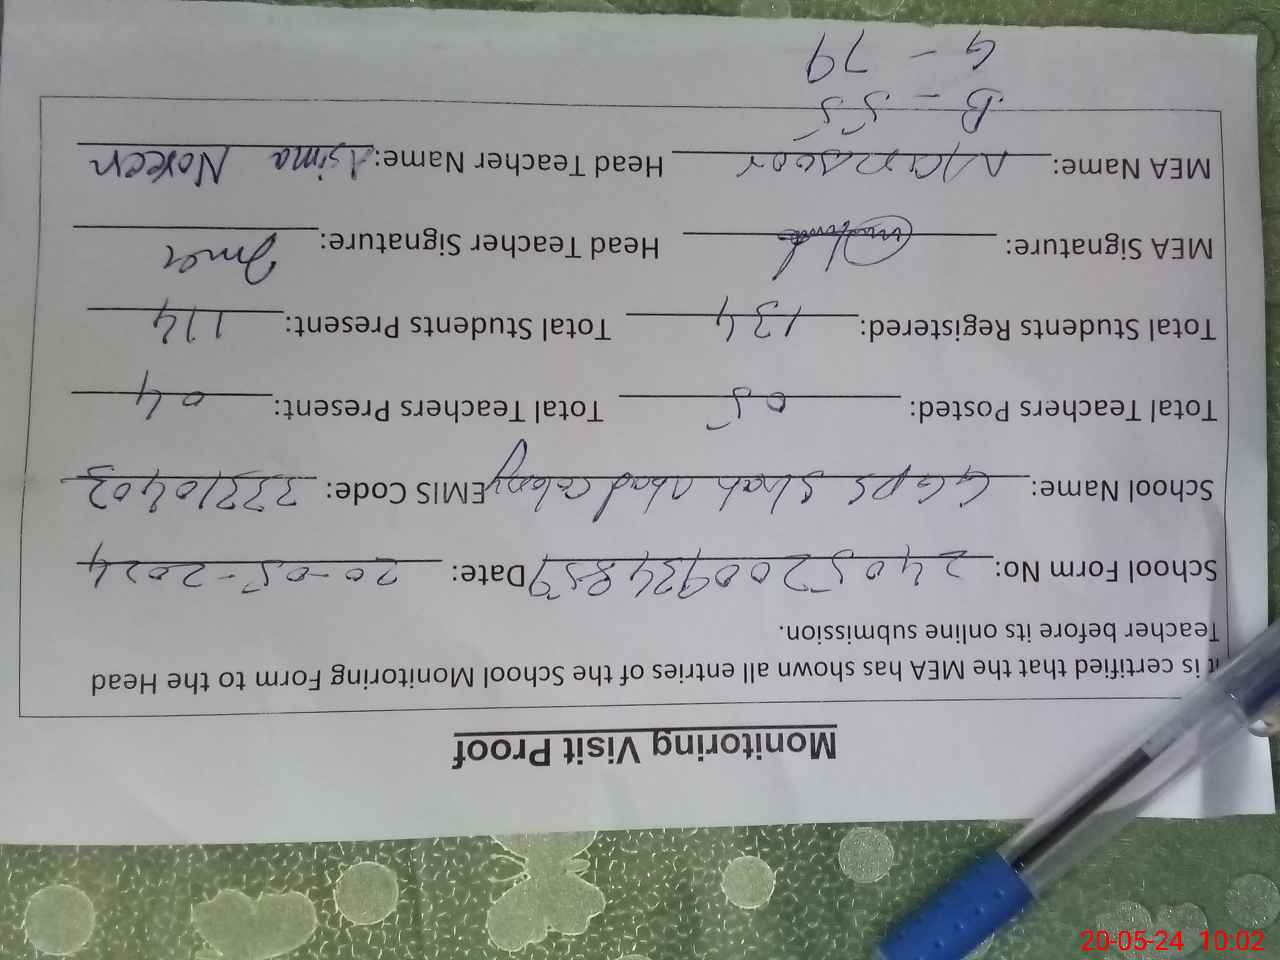 Monitoring Visit Proof
It is certified that the MEA has shown all entries of the School Monitoring Form to the Head
Teacher before its online submission.
School Form No: 2405200934859 Date: 20-05-2024
School Name: GGPS Shah Abad Colony EMIS Code: 33310403
Total Teachers Posted: 05 Total Teachers Present: 04
Total Students Registered: 134 Total Students Present: 114
MEA Signature: Head Teacher Signature:
MEA Name: Manzoor Head Teacher Name: Asima Noreen
B - 55
G - 79
20-05-24 10:02